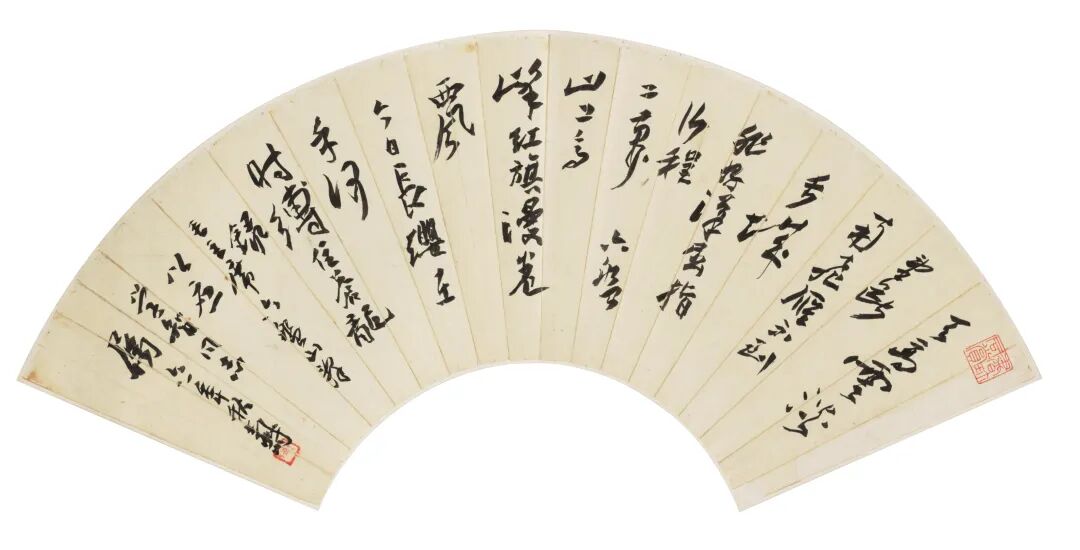 天高雲淡
望断
南飛雁不到
長城
非好漢屈指
行程
二萬 六盤
山上高
峯紅旗漫卷
西風
今日長纓在
手何
时縛住蒼龍
錄
毛主席六盤山
以应
智同志
属 年秋